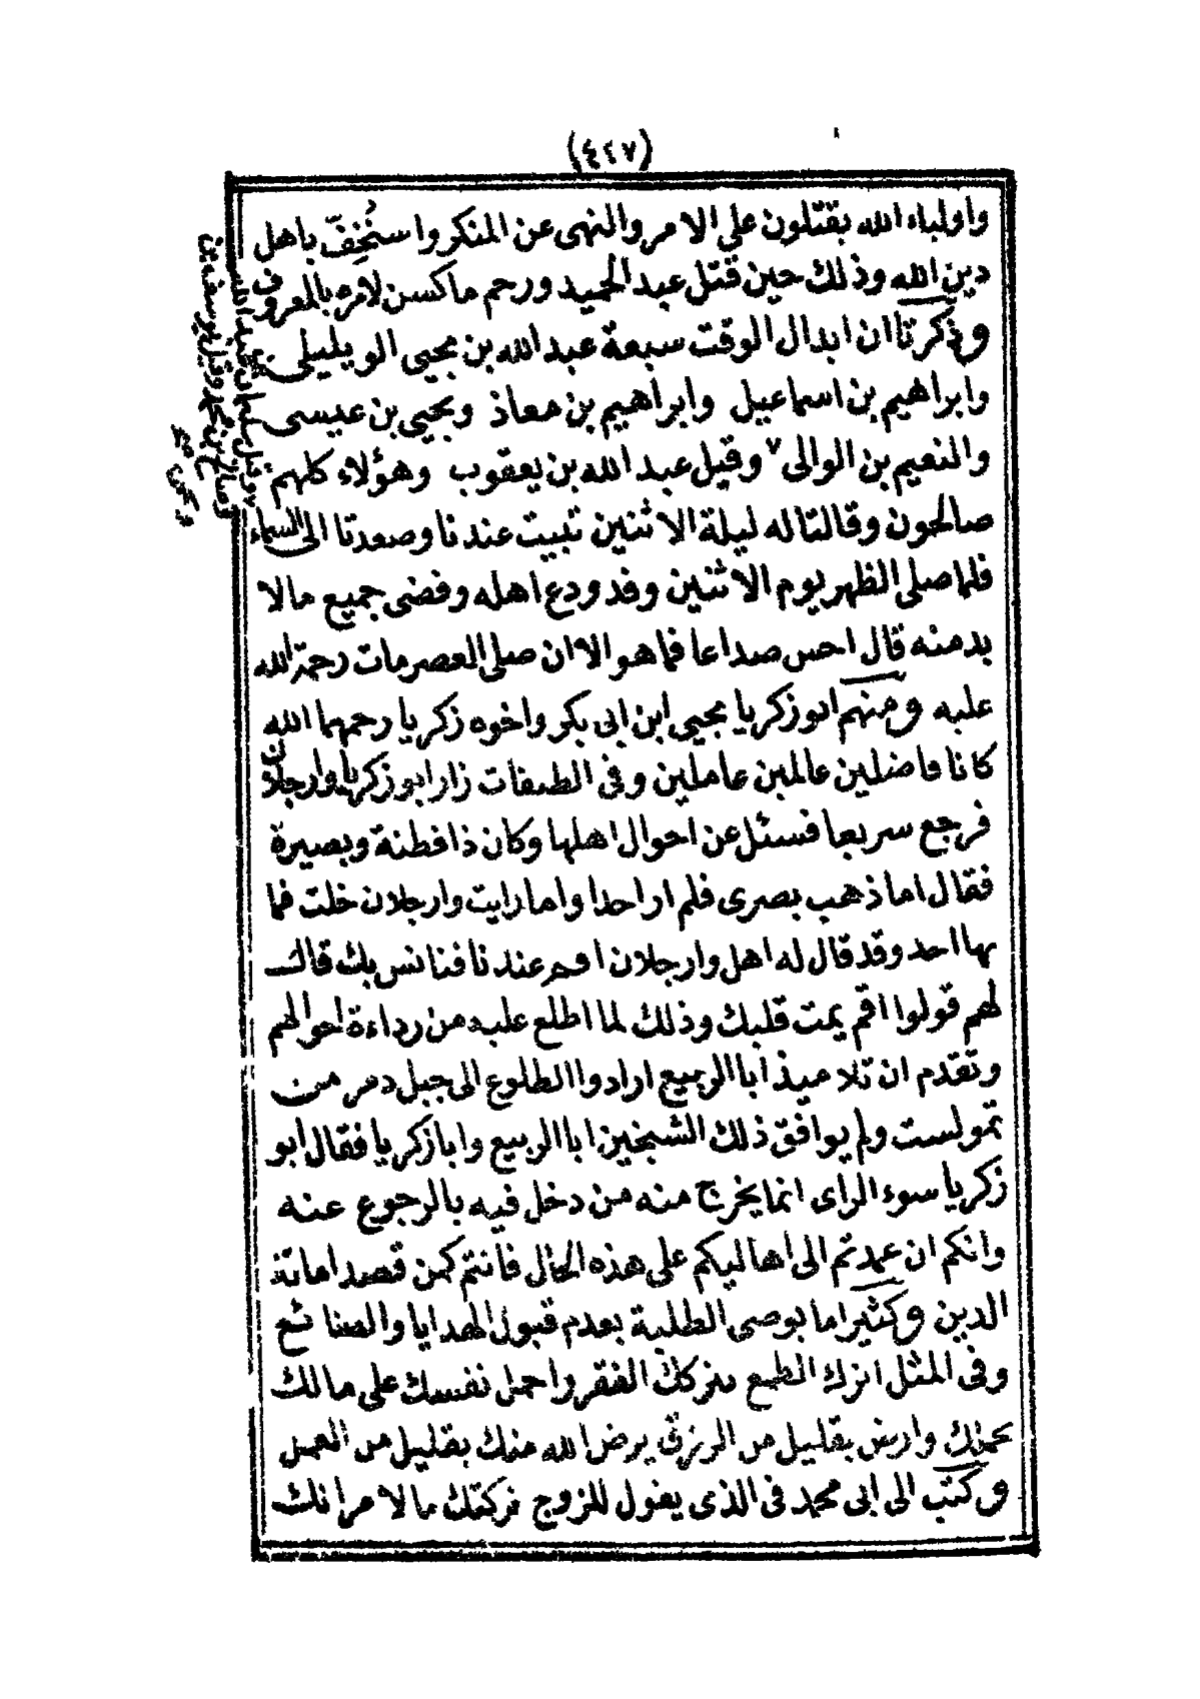 (٤٢٧)
واولياء الله يقتلون على الامر والنهى عن المنكر واستخف باهل
دين الله وذلك حين قتل عبد الحميد ورجم ماكسن لامره بالمعروف
وذكرتا ان ابدال الوقت سبعة عبد الله بن محيى الويليلى
وابراهيم بن اسماعيل وابراهيم بن معاذ ويحيى بن عيسى
والنعيم بن الوالى ٧ وقيل عبد الله بن يعقوب وهؤلاء كلهم
صالحون وقالتا له ليلة الاثنين تبيت عندنا وصعدتا الى السماء
فلما صلى الظهر يوم الاثنين وقد ودع اهله وقضى جميع مالا
بد منه قال احس صداعا فما هو الا ان صلى العصر مات رحمة الله
عليه ومنهم ابو زكريا يحيى ابن ابى بكر واخوه زكريا رحمهما الله
كانا فاضلين عالمين عاملين وفى الطبقات زار ابو زكريا وارجلان
فرجع سريعا فسئل عن احوال اهلها وكان ذا فطنة وبصيرة
فقال اما ذهب بصرى فلم ار احدا واما رايت وارجلان خلت فما
بها احد وقد قال له اهل وارجلان اقم عندنا فنانس بك قال
لهم قولوا اقم يمت قلبك وذلك لما اطلع عليه من رداءة احوالهم
وتقدم ان تلاميذ ابا الربيع ارادوا الطلوع الى جبل دمر من
تمولست ولم يوافق ذلك الشيخين ابا الربيع وابا زكريا فقال ابو
زكريا سوء الراى انما يخرج منه من دخل فيه بالرجوع عنه
وانكم ان عمدتم الى اهاليكم على هذه الحال فانتم كمن قصد اماتة
الدين وكثيرا ما يوصى الطلبة بعدم قبول الهدايا والصنائع
وفى المثل اترك الطمع يتركك الفقر واحمل نفسك على مالك
يحملك وارض بقليل من الرزق يرض الله منك بقليل من العمل
وكتب الى ابى محمد فى الذى يقول للزوج تركتك مالا مرا تلك
٧ وقيل سليمان بن عبد الله
وقيل يوسف بن